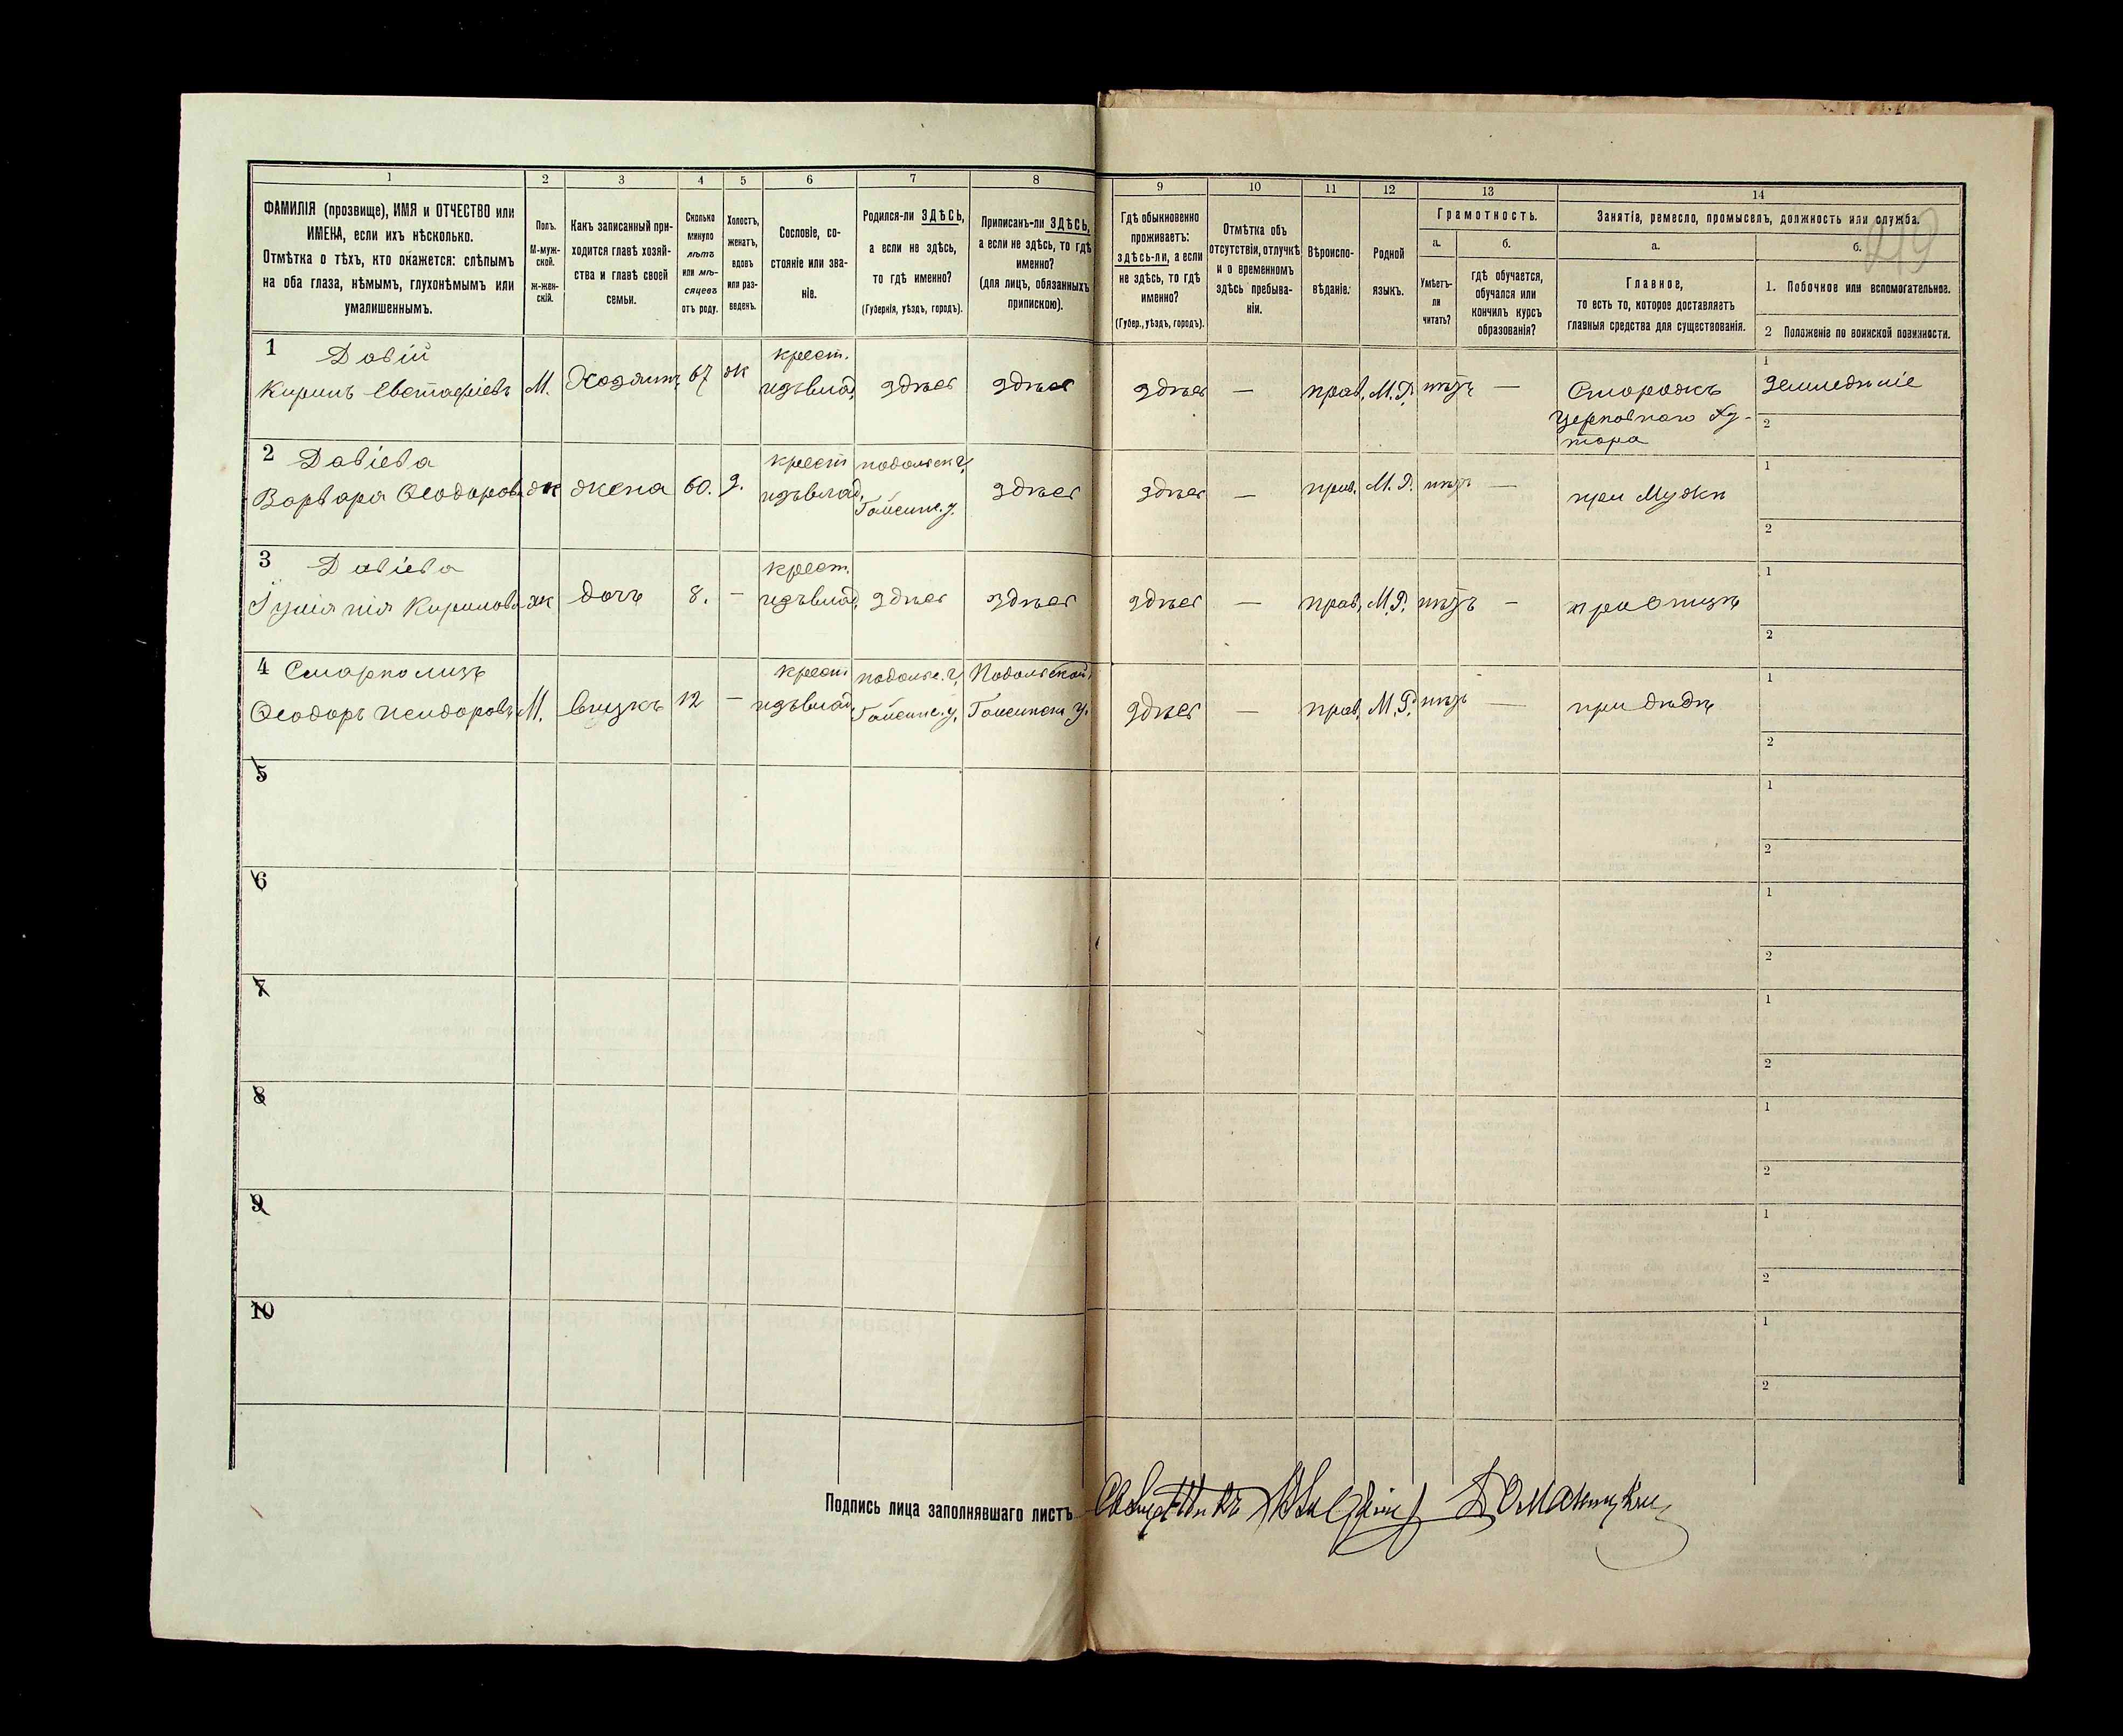 1 2 3 4 5 6 7 8 9 10 11 12 13 14
ФАМИЛІЯ (прозвище), ИМЯ и ОТЧЕСТВО или
ИМЕНА, если ихъ нѣсколько.
Отмѣтка о тѣхъ, кто окажется: слѣпымъ
на оба глаза, нѣмымъ, глухонѣмымъ или
умалишеннымъ.
Полъ.
М-муж-
ской.
Ж-жен-
скій.
Какъ записанный при-
ходится главѣ хозяй-
ства и главѣ своей
семьи.
Сколько
минуло
лѣтъ
или мѣ-
сяцевъ
отъ роду.
Холостъ,
женатъ,
вдовъ
или раз-
веденъ.
Сословіе, со-
стояніе или зва-
ніе.
Родился-ли ЗДѢСЬ,
а если не здѣсь,
то гдѣ именно?
(Губернія, уѣздъ, городъ).
Приписанъ-ли ЗДѢСЬ,
а если не здѣсь, то гдѣ
именно?
(для лицъ, обязанныхъ
припискою).
Гдѣ обыкновенно
проживаетъ:
здѣсь-ли, а если
не здѣсь, то гдѣ
именно?
(Губер., уѣздъ, городъ).
Отмѣтка объ
отсутствіи, отлучкѣ
и о временномъ
здѣсь пребыва-
ніи.
Вѣроиспо-
вѣданіе.
Родной
языкъ.
Грамотность.
а.
Умѣетъ-
ли
читать?
б.
гдѣ обучается,
обучался или
кончилъ курсъ
образованія?
Занятія, ремесло, промыселъ, должность или служба.
а.
Главное,
то есть то, которое доставляетъ
главныя средства для существованія.
б.
1. Побочное или вспомогательное.
2 Положеніе по воинской повинности.
1 Довій крест. 1
Кирилъ Евстафіевъ М. Хозяинъ 67 ж изъ влад. здѣсь здѣсь здѣсь — прав. М.Р. нѣтъ — Сторожъ земледѣліе
Церковнаго Ху-
тора 2
2 Довіева крест подольск г. 1
Варвара Ѳеодорова ж жена 60. з. изъ влад. Гайсинс. у. здѣсь здѣсь — прав. М.Р. нѣтъ — при Мужѣ
2
3 Довіева крест. 1
Кирилова ж дочь 8. — изъ влад. здѣсь здѣсь здѣсь — прав. М.Р. нѣтъ — при отцѣ
2
4 крест подольс. г. Подольской 1
Ѳеодоръ Исидоровъ М. внукъ 12 — изъ влад. Гайсинс. у. Гайсинск у. здѣсь — прав. М.Р. нѣтъ — при дѣдѣ
2
5 1
2
6 1
2
7 1
2
8 1
2
9 1
2
10 1
2
Подпись лица заполнявшаго листъ Священникъ Доманицкій